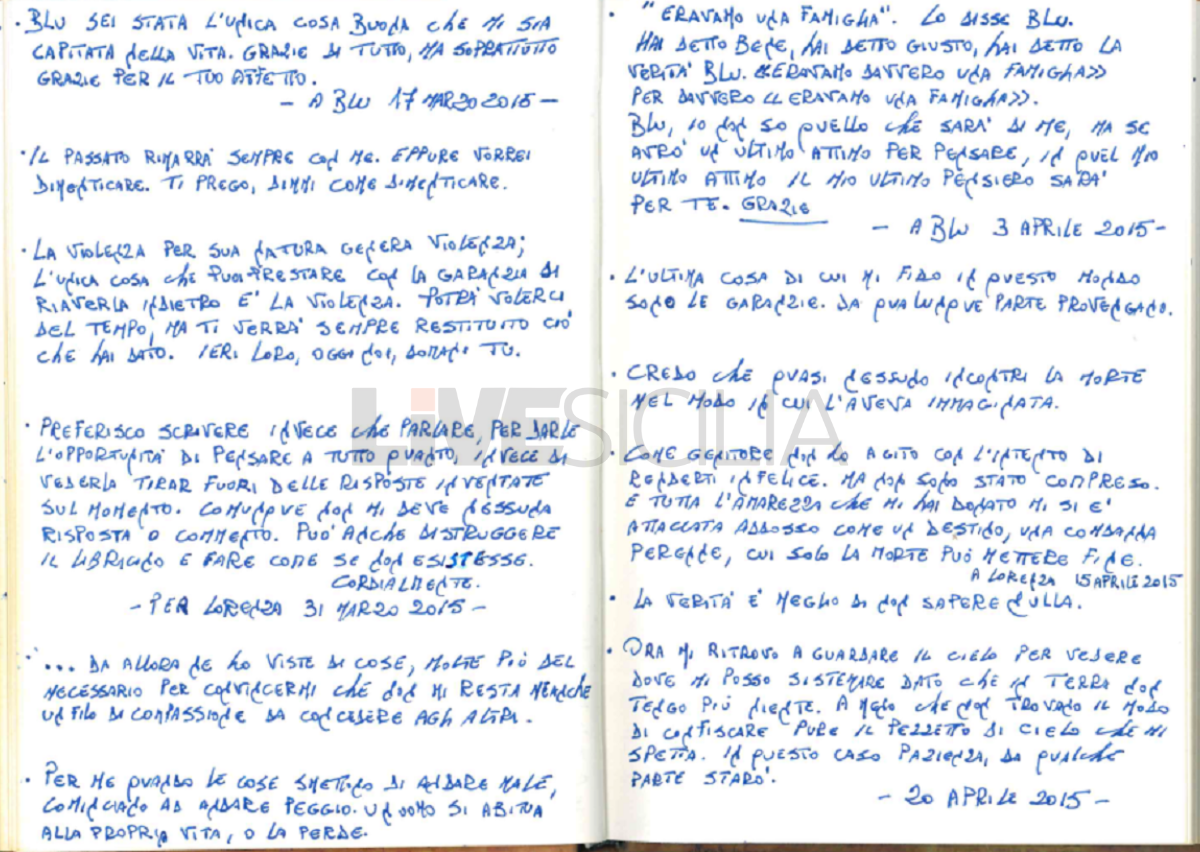 • BLU SEI STATA L'UNICA COSA BUONA CHE MI SIA
CAPITATA NELLA VITA. GRAZIE DI TUTTO, MA SOPRATTUTTO
GRAZIE PER IL TUO AFFETTO.
– A BLU 17 MARZO 2015 –
• IL PASSATO RIMARRA' SEMPRE CON ME. EPPURE VORREI
DIMENTICARE. TI PREGO, DIMMI COME DIMENTICARE.
• LA VIOLENZA PER SUA NATURA GENERA VIOLENZA;
L'UNICA COSA CHE PUOI PRESTARE CON LA GARANZIA DI
RIAVERLA INDIETRO E' LA VIOLENZA. POTRA' VOLERCI
DEL TEMPO, MA TI VERRA' SEMPRE RESTITUITO CIO'
CHE HAI DATO. IERI LORO, OGGI NOI, DOMANI TU.
• PREFERISCO SCRIVERE INVECE CHE PARLARE, PER DARLE
L'OPPORTUNITÀ DI PENSARE A TUTTO QUANTO, INVECE DI
VEDERLA TIRAR FUORI DELLE RISPOSTE INVENTATE
SUL MOMENTO. COMUNQUE NON MI DEVE NESSUNA
RISPOSTA O COMMENTO. PUO' ANCHE DISTRUGGERE
IL LIBRICINO E FARE COME SE NON ESISTESSE.
CORDIALMENTE.
– PER LORENZA 31 MARZO 2015 –
• ... DA ALLORA NE HO VISTE DI COSE, MOLTE PIÙ DEL
NECESSARIO PER CONVINCERMI CHE NON MI RESTA NEANCHE
UN FILO DI COMPASSIONE DA CONCEDERE AGLI ALTRI.
• PER ME QUANDO LE COSE SMETTONO DI ANDARE MALE,
COMINCIANO AD ANDARE PEGGIO. UN UOMO SI ABITUA
ALLA PROPRIA VITA, O LA PERDE.
• "ERAVAMO UNA FAMIGLIA". LO DISSE BLU.
HAI DETTO BENE, HAI DETTO GIUSTO, HAI DETTO LA
VERITA' BLU. «ERAVAMO DAVVERO UNA FAMIGLIA»
PER DAVVERO «ERAVAMO UNA FAMIGLIA».
BLU, IO NON SO QUELLO CHE SARA' DI ME, MA SE
AVRO' UN ULTIMO ATTIMO PER PENSARE, IN QUEL MIO
ULTIMO ATTIMO IL MIO ULTIMO PENSIERO SARA'
PER TE. GRAZIE
– A BLU 3 APRILE 2015 –
• L'ULTIMA COSA DI CUI MI FIDO IN QUESTO MONDO
SONO LE GARANZIE. DA QUALUNQUE PARTE PROVENGANO.
• CREDO CHE QUASI NESSUNO INCONTRI LA MORTE
NEL MODO IN CUI L'AVEVA IMMAGINATA.
LiVESICILIA
• COME GENITORE NON HO AGITO CON L'INTENTO DI
RENDERTI INFELICE. MA NON SONO STATO COMPRESO.
E TUTTA L'AMAREZZA CHE MI HAI DONATO MI SI E'
ATTACCATA ADDOSSO COME UN DESTINO, UNA CONDANNA
PERENNE, CUI SOLO LA MORTE PUÒ METTERE FINE.
A LORENZA 15 APRILE 2015
• LA VERITA' E' MEGLIO DI NON SAPERE NULLA.
• ORA MI RITROVO A GUARDARE IL CIELO PER VEDERE
DOVE MI POSSO SISTEMARE DATO CHE IN TERRA NON
TENGO PIÙ NIENTE. A MENO CHE NON TROVANO IL MODO
DI CONFISCARE PURE IL PEZZETTO DI CIELO CHE MI
SPETTA. IN QUESTO CASO PAZIENZA, DA QUALCHE
PARTE STARO'.
– 20 APRILE 2015 –